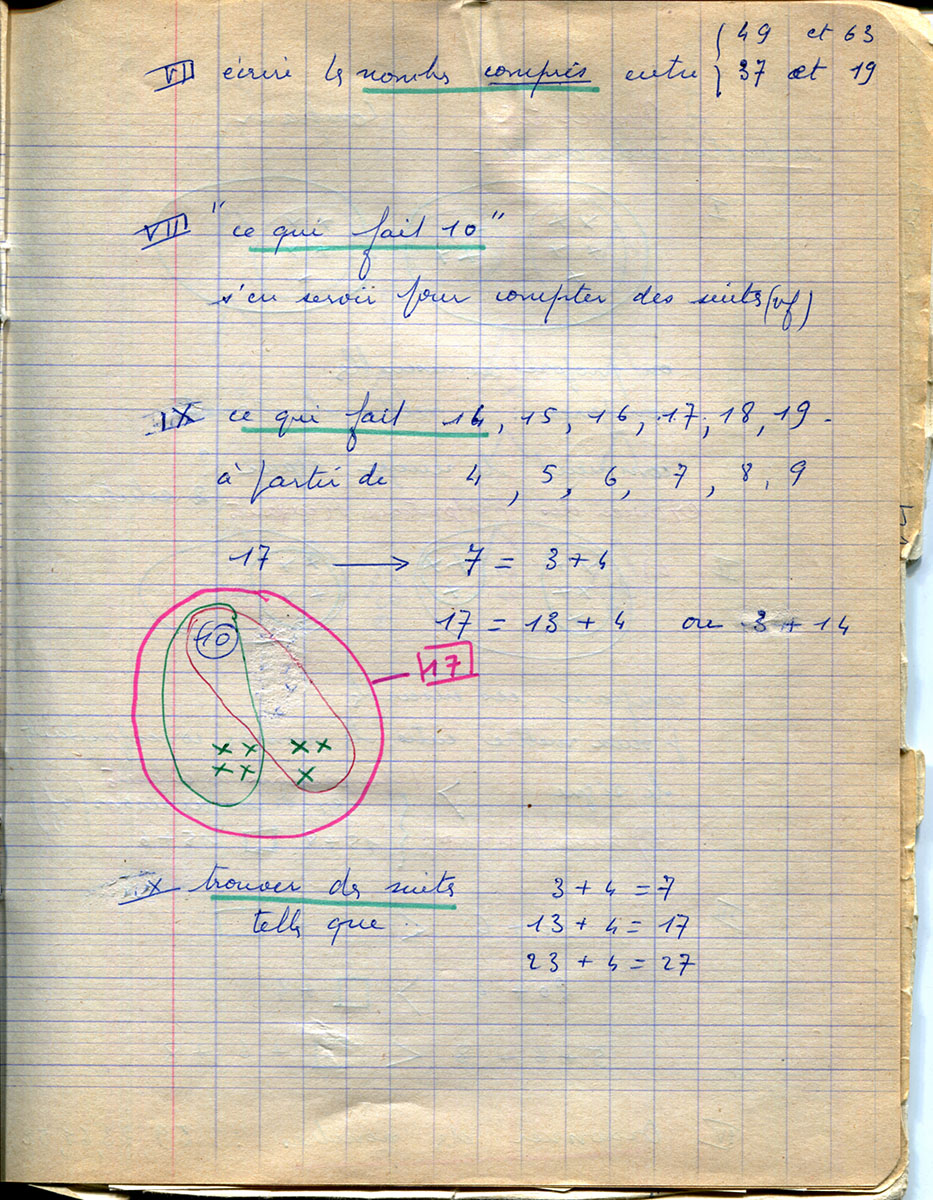 49 et 63
VI écrire les nombres compris entre 37 et 19
VII "ce qui fait 10"
s'en servir pour compter des suites (vf)
IX ce qui fait 14, 15, 16, 17, 18, 19.
à partir de 4, 5, 6, 7, 8, 9
17 → 7 = 3 + 4
17 = 13 + 4 ou 3 + 14
10
17
x x x x
x x x
IX trouver des suites 3 + 4 = 7
telles que .. 13 + 4 = 17
23 + 4 = 27